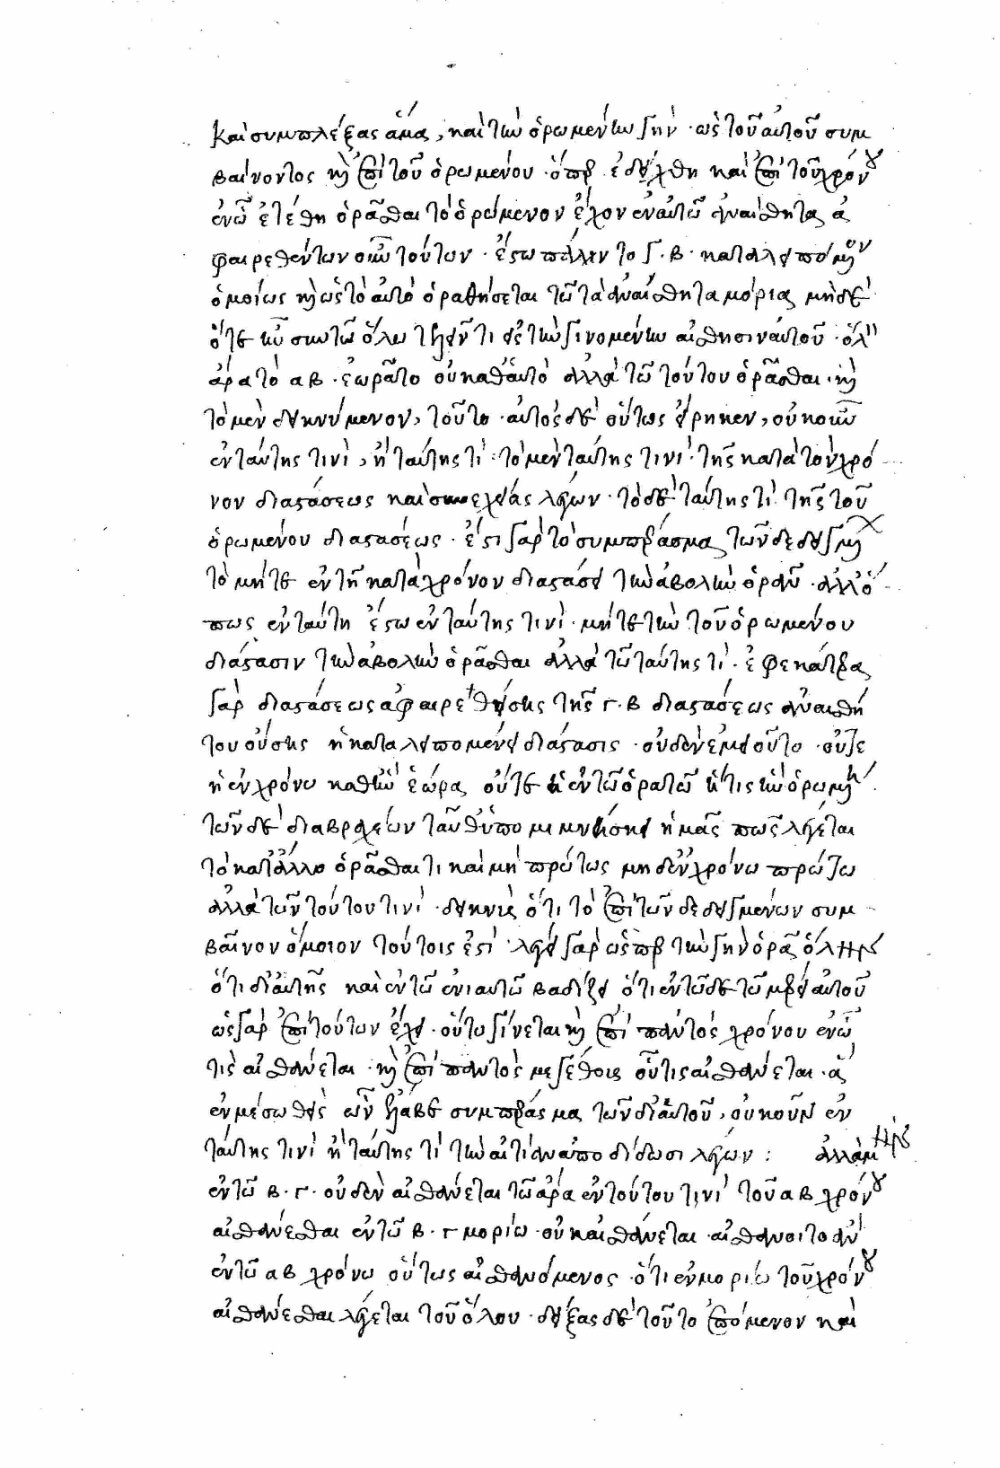 καὶ συμπλέξας ἅμα, καὶ τὴν ὁρωμένην γῆν · ὡς τοῦ αὐτοῦ συμ
βαίνοντος κὴ ἐπὶ τοῦ ὁρωμένου · ὅπερ ἐδείχθη καὶ ἐπὶ τοῦ χρόνου
ἐν ᾧ ἐτέθη ὁρᾶσθαι τὸ ὁρώμενον ἔχον ἐν αὐτῷ ἀναίσθητα ἀ
φαιρεθέντων οὖν τούτων · ἔστω πάλιν το γ · β · καταλειπόμενον
ὁμοίως κὴ ὡς τὸ αὐτὸ ὁραθήσεται τῷ τὰ ἀναίσθητα μόρια, μηδὲ
ὅτε ἦν σὺν τῷ ὅλω τελεῖν τι εἰς τὴν γινομένην αἴσθησιν αὐτοῦ · ὅλον
ἄρα τὸ αβ · ἑωρᾶτο οὐ καθ' αὑτὸ ἀλλὰ τῷ τούτου ὁρᾶσθαι · κὴ
τὸ μὲν δεικνύμενον, τοῦτο · αὐτὸς δὲ οὕτως εἴρηκεν, οὐκοῦν
ἐν ταύτης τινὶ, ἢ ταύτης τὶ · τὸ μὲν ταύτης τινὶ · τῆς κατὰ τὸν χρό
νον διαστάσεως καὶ συνεχείας λέγων · τὸ δὲ ταύτης τὶ τῆς τοῦ
ὁρωμένου διαστάσεως · ἔστι γὰρ τὸ συμπέρασμα τῶν δεδειγμένων
τὸ μήτε ἐν τῇ κατὰ χρόνον διαστάσει τὴν ἀβ ὅλην ὁρᾶν · ἀλλ' ὅ
πως ἐν ταύτῃ ἔστω ἐν ταύτης τινὶ · μήτε τὴν τοῦ ὁρωμένου
διάστασιν τὴν ἀβ ὅλην ὁρᾶσθαι ἀλλὰ τῷ ταύτης τὶ · ἐφ' ἑκατέρας
γὰρ διαστάσεως ἀφαιρεθείσης τῆς γ · β διαστάσεως ἀναισθή
του οὔσης ἡ καταλειπομένη διάστασις · οὐδὲν ἐμ οὗτο · οὔτε
ἡ ἐν χρόνω καθ' ἣν ἑώρα οὔτε ἡ ἐν τῷ ὁρατῷ ἥτις ἦν ὁρωμένη
τῶν δὲ διὰ βραχέων ταῦθ' ὑπομιμνήσκει ἡμᾶς πῶς λέγεται
τὸ κατ' ἄλλο ὁρᾶσθαι τι καὶ μὴ πρώτως μηδ' ἐν χρόνω πρώτω
ἀλλὰ τῶν τούτου τινὶ · δεικνὺς ὅτι τὸ ἐπὶ τῶν δεδειγμένων συμ
βαῖνον ὅμοιον τούτοις ἐστὶ · λέγει γὰρ ὥσπερ τὴν γῆν ὁρᾷ ὅλην
ὅτι δι' αὐτῆς καὶ ἐν τῷ ἐνιαυτῷ βαδίζει ὅτι ἐν τῷδε τῷ μέρει αὐτοῦ
ὡς γὰρ ἐπὶ τούτων ἔχει · οὕτω γίνεται κὴ ἐπὶ παντὸς χρόνου ἐν ᾧ
τις αἰσθάνεται · κὴ ἐπὶ παντὸς μεγέθους οὗ τις αἰσθάνεται · ἃ
ἐν μέσω θεὶς συμπέρασμα τῶν δι' αὐτοῦ, οὐκοῦν ἐν
ταύτης τινὶ ἢ ταύτης τὶ τὴν αἰτίαν ἀποδίδωσι λέγων : ἀλλὰ μὴν
ἐν τῷ β · γ · οὐδὲν αἰσθάνεται τῷ ἄρα ἐν τούτου τινὶ τοῦ αβ χρόνου
αἰσθάνεσθαι ἐν τῷ β · γ μορίω · οὐκ αἰσθάνεται · αἰσθάνοιτο ἂν
ἐν τῷ αβ χρόνω οὕτως αἰσθανόμενος · ὅτι ἐν μορίω τοῦ χρόνου
αἰσθάνεσθαι λέγεται τοῦ ὅλου · δείξας δὲ τοῦτο ἑπόμενον καὶ